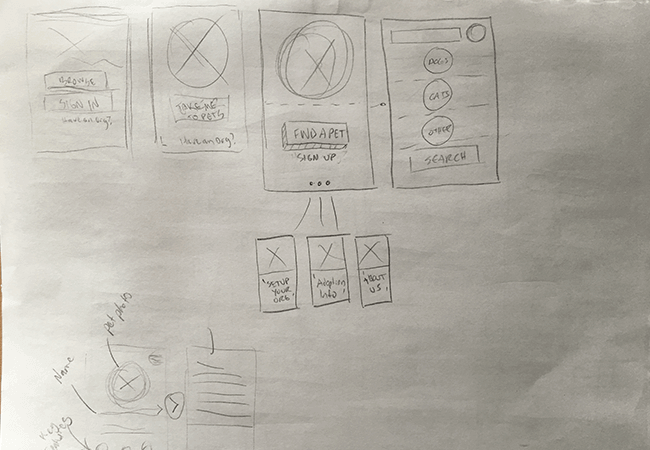 BROWSE
SIGN IN
Have an org?
TAKE ME
TO PETS
Have an org?
FIND A PET
SIGN UP
DOGS
CATS
OTHER
SEARCH
'SETUP
YOUR
ORG'
'Adoption
Info'
'ABOUT
US'
Pet photo
Name
Key